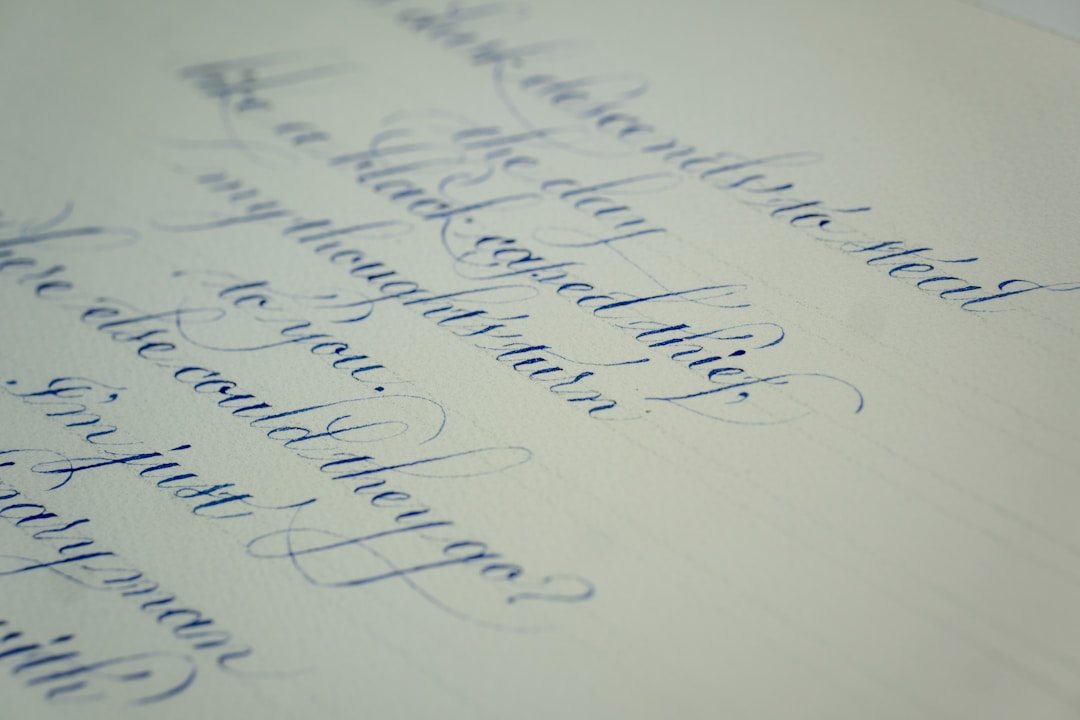 dark descends to steal
the day
like a black caped thief,
my thoughts turn
to you.
else could they go?
I'm just
man
with